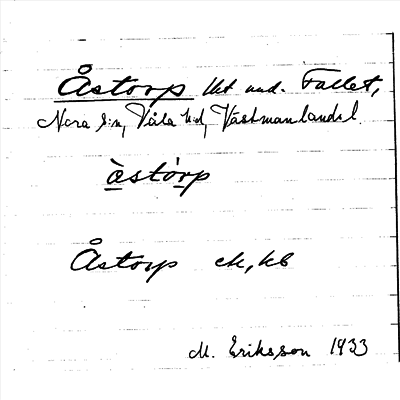 Åstorp lht und. Fallet,
Nora s:n, Våla hd, Västmanlands l.
òstórp
Åstorp ek, kb
M. Eriksson 1933